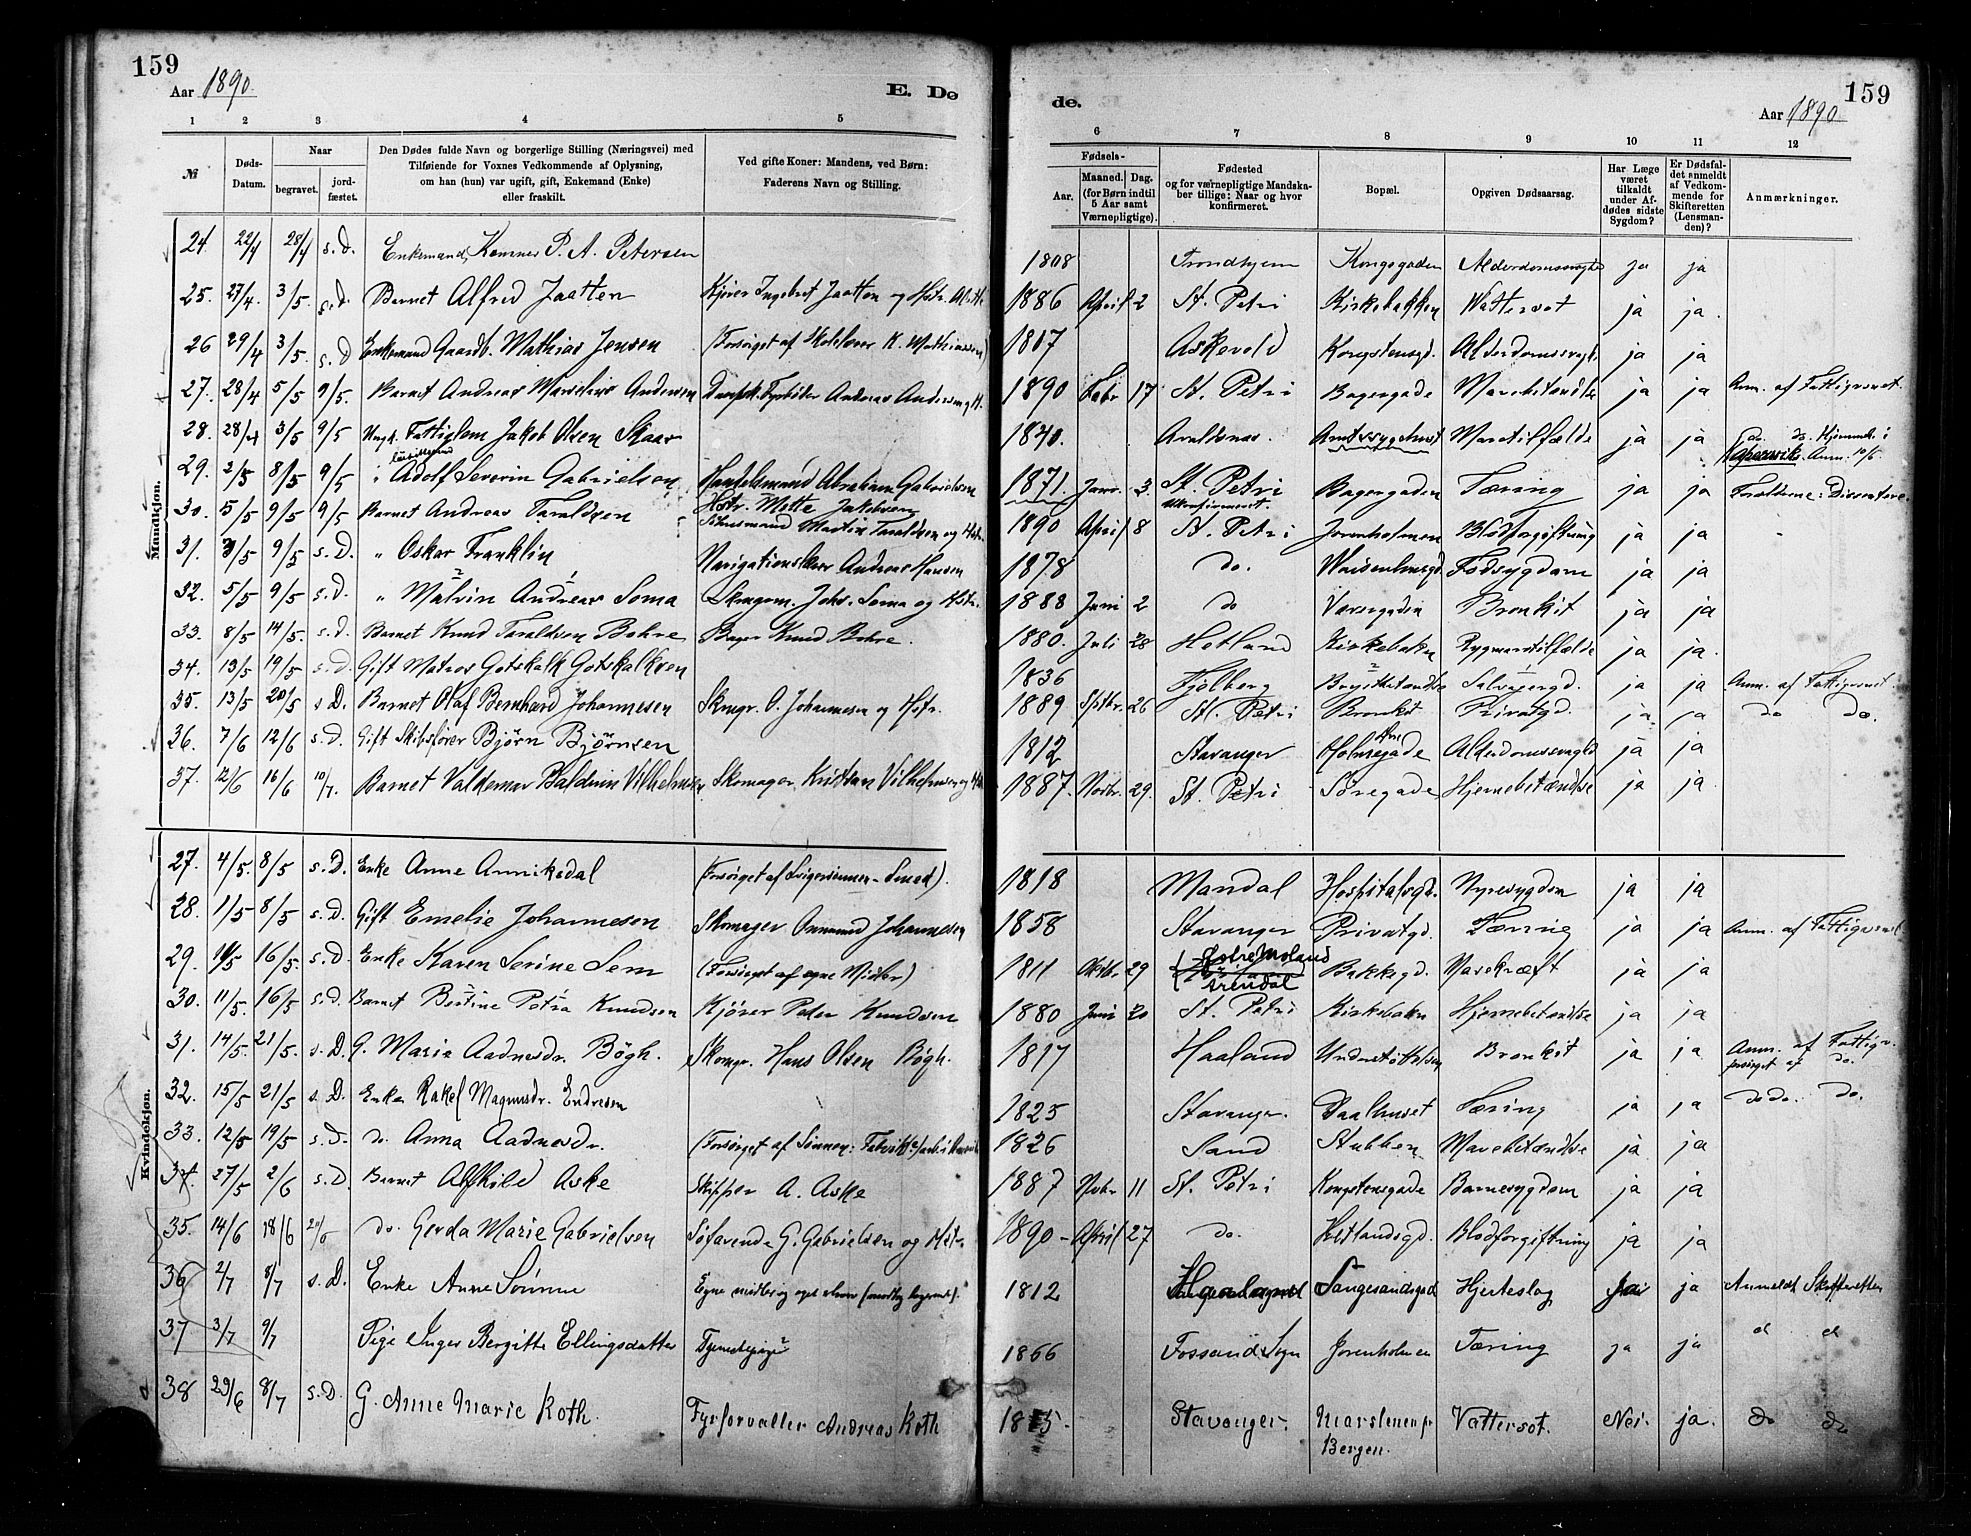 159
Aar 1890.
E. Dø
1 2 3 4 5
№ Døds-Datum. Naar begravet. jord-fæstet. Den Dødes fulde Navn og borgerlige Stilling (Næringsvei) med Tilføiende for Voxnes Vedkommende af Oplysning, om han (hun) var ugift, gift, Enkemand (Enke) eller fraskilt. Ved gifte Koner: Mandens, ved Børn: Faderens Navn og Stilling.
Mandkjøn.
24. 22/4 28/4 s.D. Enkemand, Kemner P. A. Petersen
25. 27/4. 3/5. s.D. Barnet Alfred Jaatten Kjører Ingebret Jaatten og Hstr.
26 29/4 3/5. s.D Enkemand Gaardb. Mathias Jensen (Forsørget af Skolelærer K. Mathiassen)
27. 28/4 5/5 9/5. Barnet Andreas Marselius Andersen Dampsk. Fyrbøder Andreas Andersen og H.
28. 28/4 3/5 9/5 Ungk. Fattiglem Jakob Olsen Skaar
29. 2/5 8/5 9/5 Adolf Severin Gabrielsen Handelsmand Abraham Gabrielsen Hstr. Mette Jakobsen
30. 5/5 9/5 9/5 Barnet Andreas Taraldsen Martin Taraldsen og Hstr.
31. 3/5 9/5 s.D. " Oskar Franklin Navigationslærer Andreas Hansen
32. 5/5 9/5 s.D. " Malvin Andreas Soma Skmgrm. Johs. Soma og Hstr.
33. 8/5 14/5. s.D. Barnet Knud Taraldsen Bohre Bager Knud Bohre.
34. 13/5 19/5 s.D. Gift Matros Gotskalk Gotskalksen
35. 13/5 20/5 s.D. Barnet Olaf Bernhard Johannesen Skmgr. O. Johannesen og Hstr.
36. 7/6 12/6 s.D. Gift Skibsfører Bjørn Bjørnsen
37. 12/6 16/6 10/7. Barnet Valdemar Baldevin Vilhelmsen Skomager Kristian Vilhelmsen og
Kvindekjøn.
27. 4/5. 8/5 s.D. Enke Anne Anniksdal (Forsørget af Svigersønnen - Smed).
28. 1/5 8/5 s.D. Gift Emelie Johannesen Skomager Ommund Johannesen
29. 10/5 16/5. s.D. Enke Karen Serine Sem (Forsørget af egne Midler)
30. 11/5. 16/5 s.D. Barnet Bertine Petra Knudsen Kjører Peder Knudsen
31. 14/5. 21/5. s.D. G. Maria Aadnesdr. Bögh. Skomgr. Hans Olsen Bögh.
32. 15/5 21/5 s.D. Enke Rakel Magnusdr. Endresen
33. 12/5 19/5 s.D. do. Anna Aadnesdr. (Forsørget af Sønnen:
34. 27/5 2/6 s.D. Barnet Alfhild Aske Skipper A. Aske
35. 14/6 18/6 do. Gerda Marie Gabrielsen Søfarende G. Gabrielsen og Hstr.
36 2/7 8/7 s.D. Enke Anne Sömme Egne midler og
37 3/7 9/7 Pige Inger Bergitte Ellingsdatter Tjenestepige
38 29/6 8/7 s.D. G. Anne Marie Koth. Fyrforvalter Andreas Koth
159
Aar 1890.
de.
6 7 8 9 10 11 12
Fødsels- Aar. Maaned. Dag. (for Børn indtil 5 Aar samt Værnepligtige). Fødested og for værnepligtige Mandskaber tillige: Naar og hvor konfirmeret. Bopæl. Opgiven Dødsaarsag. Har Læge været tilkaldt under Afdødes sidste Sygdom? Er Dødsfaldet anmeldt af Vedkommende for Skifteretten (Lensmanden)? Anmærkninger.
1808 Trondhjem Kongsgaden Alderdomssvaghed ja ja
1886 April 2 St. Petri Kirkebakken Vattersot ja ja.
1817 Askevold Kongstensgd. Alderdomssvagh. ja ja
1890 Febr 17 St. Petri Bagergade Mavebetændelse ja ja Anm. af Fattigvæsnet.
1840. Avaldsnes. Amtssygehuset Mavetilfælde ja ja do. do. Hjemmeh. i
1871. Janr. 3. St. Petri ukonfirmeret. Bagergaden Tæring ja ja Forældrene: Dissentere.
1890 April 8 St. Petri Jorenholmen Blodforgiftning ja ja
1878 do. Waisenhusgd. Fodsygdom ja ja
1888 Juni 2 do Værsgaden Bronkit ja ja
1880. Juli 28 Hetland Kirkebaken Rygmarvstilfælde ja ja.
1836 Fjølberg Brystbetændelse ja ja Anm. af Fattigvæsnet
1889 Sptbr. 26 St. Petri Bronkit Privatgd. ja ja do do.
1812 Stavanger Holmegade Alderdomssvaghed ja ja
1887. Novbr. 29. St. Petri Søregade Hjernebetændelse ja ja
1818 Mandal Hospitalsgd. Nyresygdom ja ja
1858 Stavanger Privatgd. Tæring ja ja Anm. af Fattigvæsnet
1811 Oktbr. 29 Østre Moland Arendal Bakkegd. Mavekræft ja ja
1880 Juni 20 St. Petri Kirkebakn Hjernebetændelse ja ja
1817 Haaland Understøttelsen Bronkit ja ja Anm. af Fattigv. forsørget af do.
1825 Stavanger. Daalhuset Tæring ja ja do do. do.
1826 Sand Stubben Mavebetændelse ja ja
1887 Novbr 11 St. Petri Kongstensgade Barnesygdom ja ja
1890 - April 27 do. Hetlandsgd. Blodforgiftning ja ja
1812 Haaland Langesandsgad Hjerteslag ja ja Anmeldt Skifteretten
1866 Fossand Sogn Jorenholmen Tæring ja ja d d
1815. Stavanger. Marstenen pr Bergen. Vattersot. Nei. ja. do do